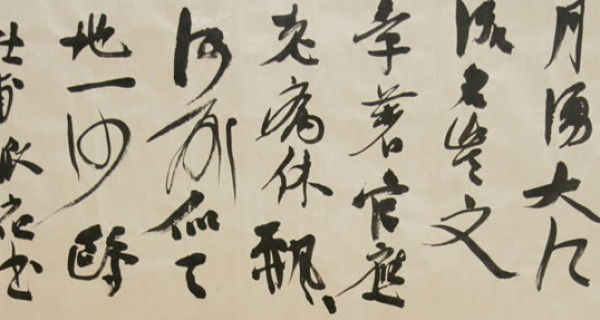 月湧大江
流名豈文
章著官應
老病休飄々
何所似天
地一沙鷗
杜甫
書